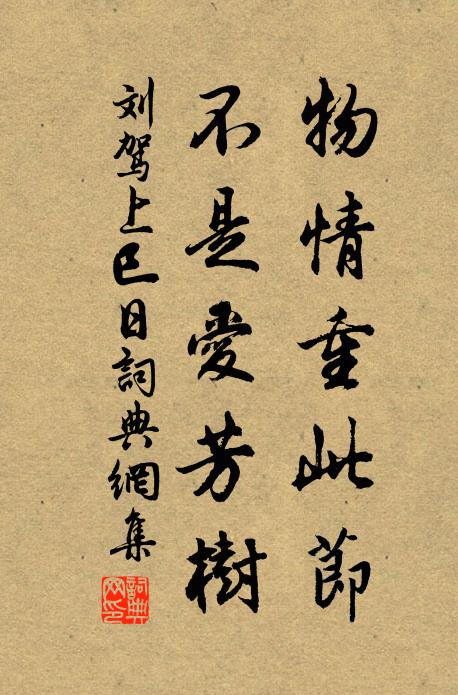 物情重此節
不是愛芳樹
刘駕上巳日詞典網集
詞典网印